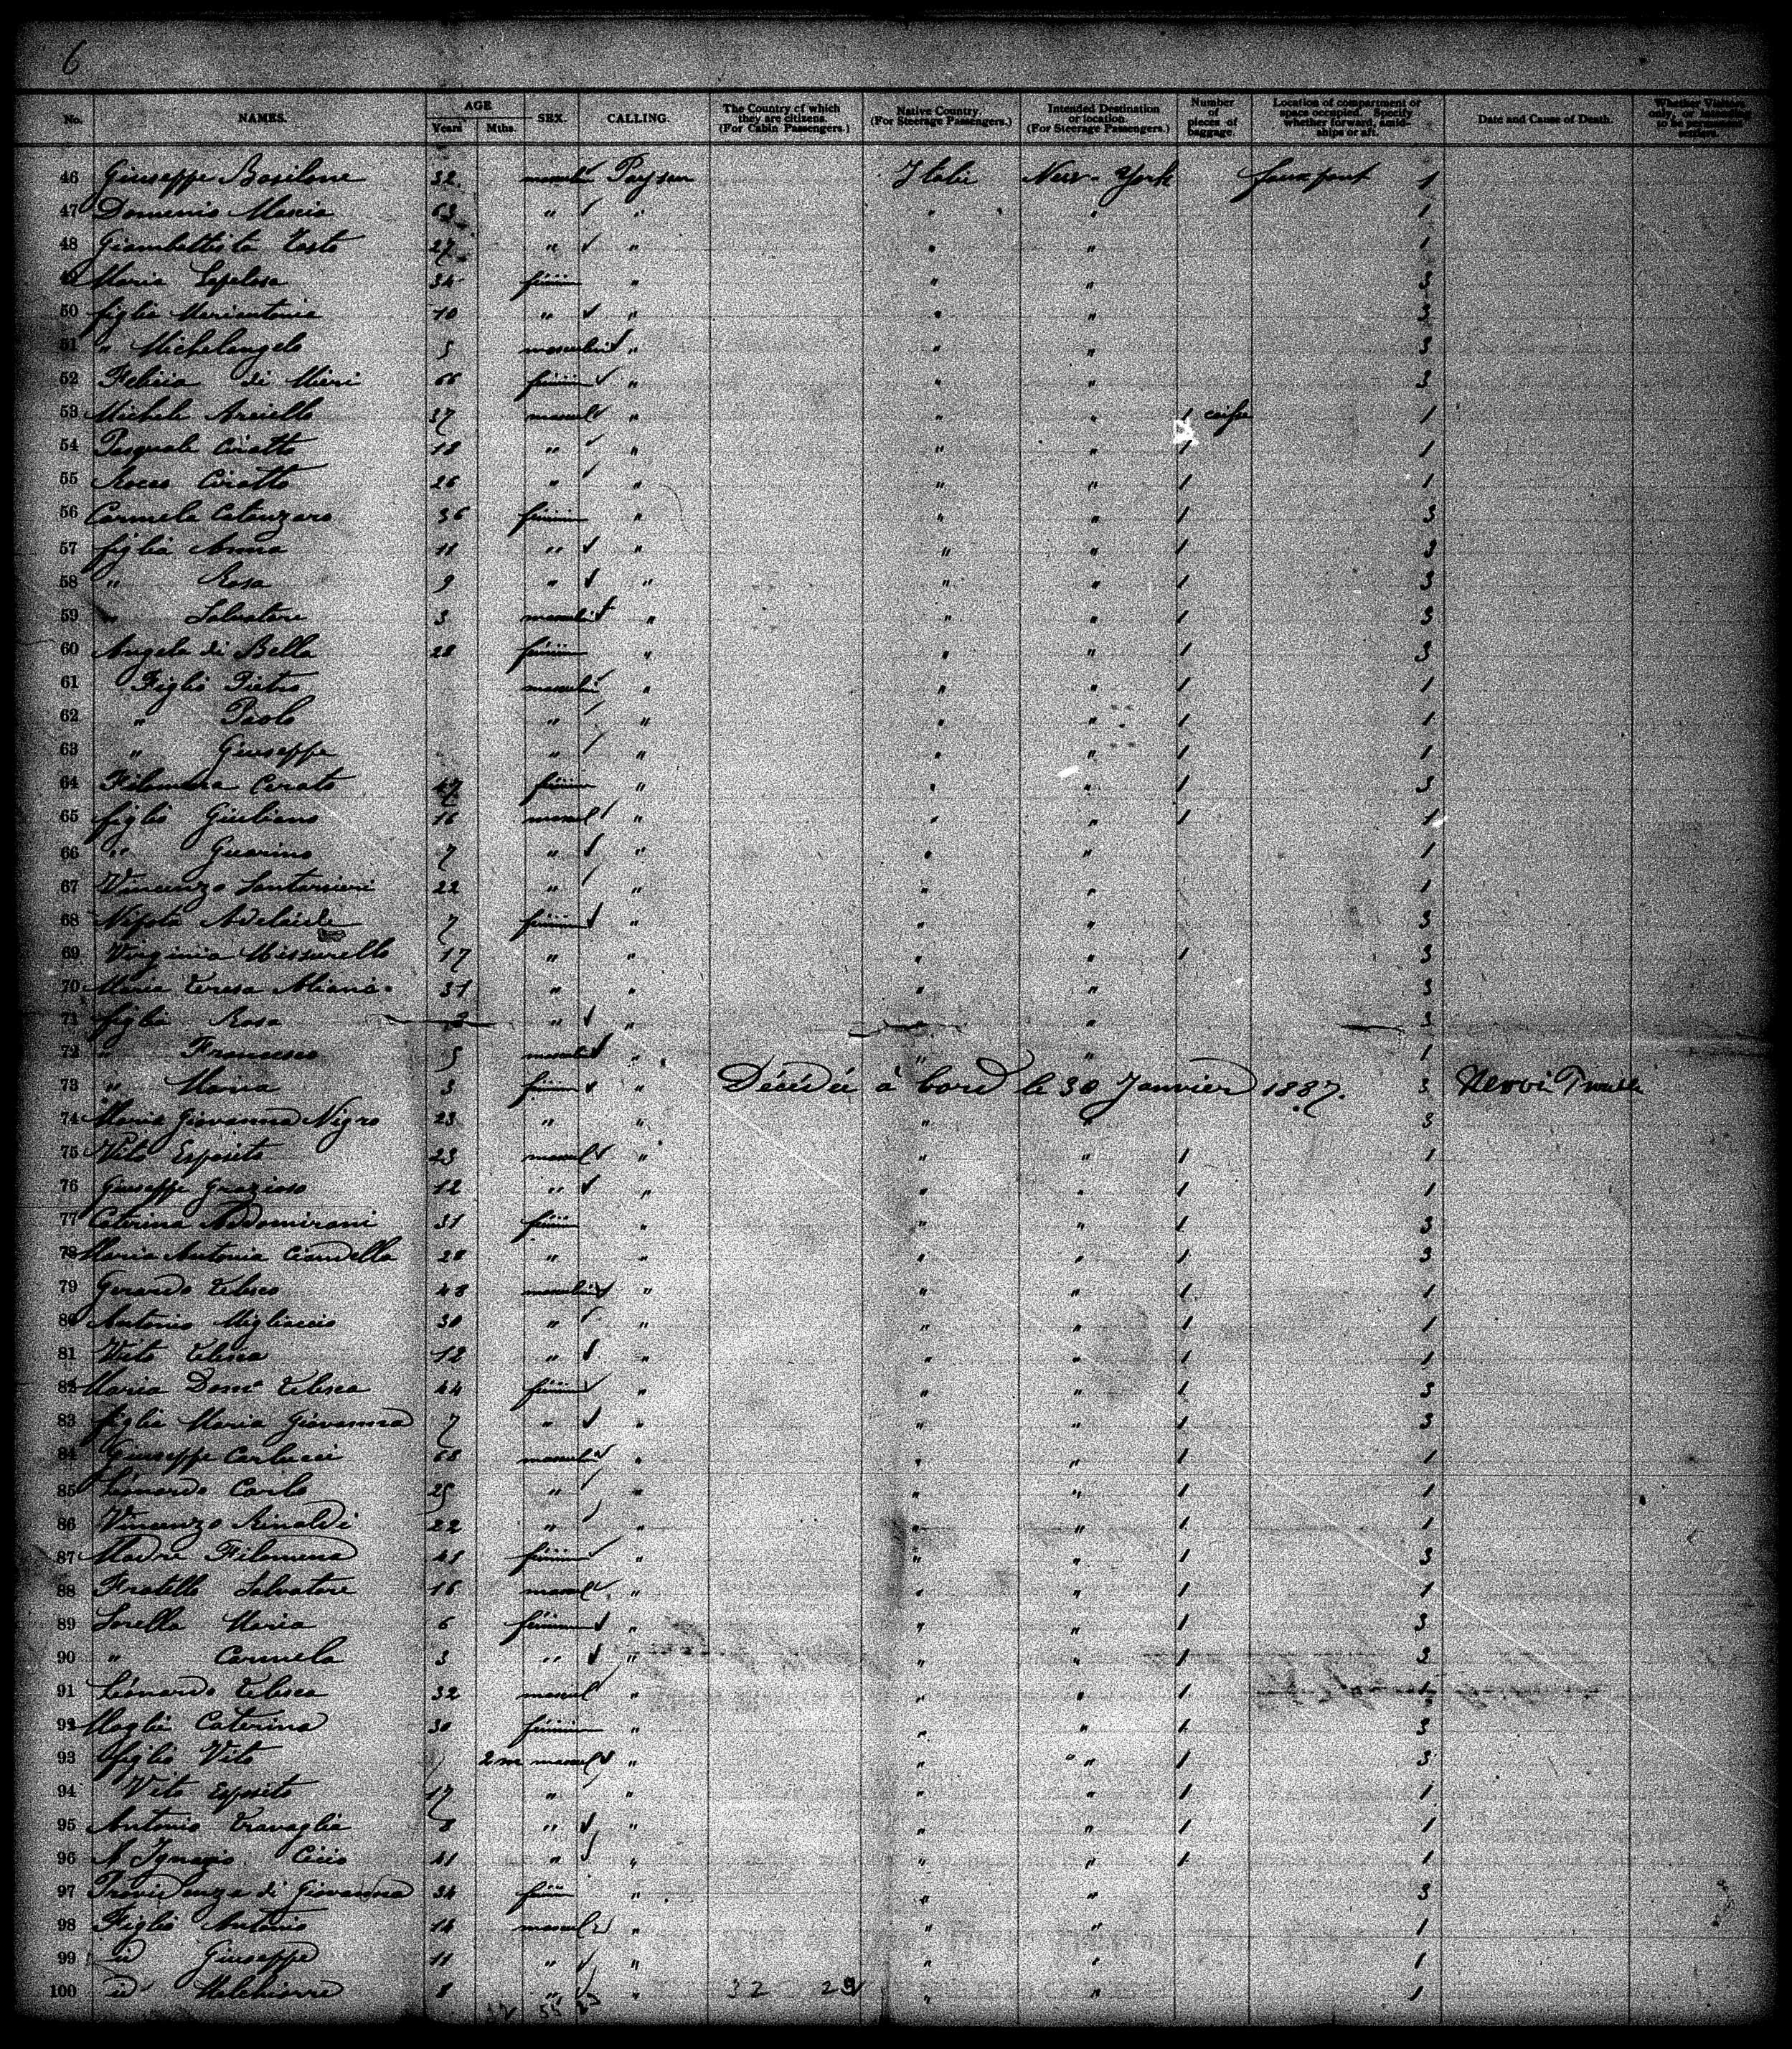 6
No. NAMES. AGE Years Mths. SEX. CALLING. The Country of which they are citizens. (For Cabin Passengers.) Native Country. (For Steerage Passengers.) Intended Destination or location. (For Steerage Passengers.) Number of pieces of baggage. Location of compartment or space occupied. Specify whether forward, amidships or aft. Date and Cause of Death. Whether Visitors only, or intending to be permanent settlers.
46 Giuseppe Basilone 32 masculin Paysan Italie New-York faux pont 1
47 Domenico 63 " " " " 1
48 Giambattista Testo 27 " " " " 1
49 Maria 34 fémin " " " 3
50 figlia Mariantonia 10 " " " " 3
51 " Michelangelo 5 masculin " " " 3
52 Felicia di Mieri 66 fémin " " " 3
53 Michele Araiello 37 mascul " " " 1 caisse 1
54 Pasquale Ciratto 18 " " " " 1 1
55 Rocco Ciratto 26 " " " " 1 1
56 Carmela Catanzaro 36 fémin " " " 1 3
57 figlia Anna 11 " " " " 1 3
58 " Rosa 9 " " " " 1 3
59 " Salvatore 3 masculin " " " 1 3
60 Angela di Bella 28 fémin " " " 1 3
61 Figlio Pietro masculin " " " 1 1
62 " Paolo " " " " 1 1
63 " Giuseppe " " " " 1 1
64 Filomena Cerato 47 fémin " " " 1 3
65 figlio Giuliano 16 mascul " " " 1 1
66 " Guarino 7 " " " " 1
67 Vincenzo Santarsieri 22 " " " " 1
68 Nipote Adelaide 7 fémin " " " 3
69 Virginia Missurello 17 " " " " 1 3
70 Maria Teresa Aliano 31 " " " " 3
71 figlia Rosa " " " " 3
72 " Francesco 5 masculin " " " 1
73 " Maria 3 fémin " Décédée à bord le 30 Janvier 1887. 3
74 Maria Giovanna Nigro 23 " " " " 3
75 Vito Esposito 23 mascul " " " 1 1
76 Giuseppe Grazioso 12 " " " " 1 1
77 Caterina Addomirani 31 fémin " " " 1 3
78 Maria Antonia Ciandella 28 " " " " 1 3
79 Gerardo Telesca 48 masculin " " " 1 1
80 Antonio Migliaccio 30 " " " " 1 1
81 Vito Telesca 12 " " " " 1 1
82 Maria Dom.a Telesca 44 fémin " " " 1 3
83 figlia Maria Giovanna 7 " " " " 1 3
84 Giuseppe Carlucci 68 masculin " " " 1 1
85 Léonardo Carlo 25 " " " " 1 1
86 Vincenzo Rinaldi 22 " " " " 1 1
87 Madre Filomena 41 fémin " " " 1 3
88 Fratello Salvatore 16 mascul " " " 1 1
89 Sorella Maria 6 fémin " " " 1 3
90 " Carmela 3 " " " " 1 3
91 Léonardo Telesca 32 mascul " " " 1 1
92 Moglie Caterina 30 fémin " " " 1 3
93 figlio Vito 2 m mascul " " " 1 3
94 Vito Esposito 17 " " " " 1 1
95 Antonio Travaglia 8 " " " " 1 1
96 N Ignazio Cicio 41 " " " " 1 1
97 Providenza di Giovanna 34 fémin " " " 3
98 Figlio Antonio 14 mascul " " " 1
99 id Giuseppe 11 " " " " 1
100 id Melchiorre 8 " " 32 29 " " 1